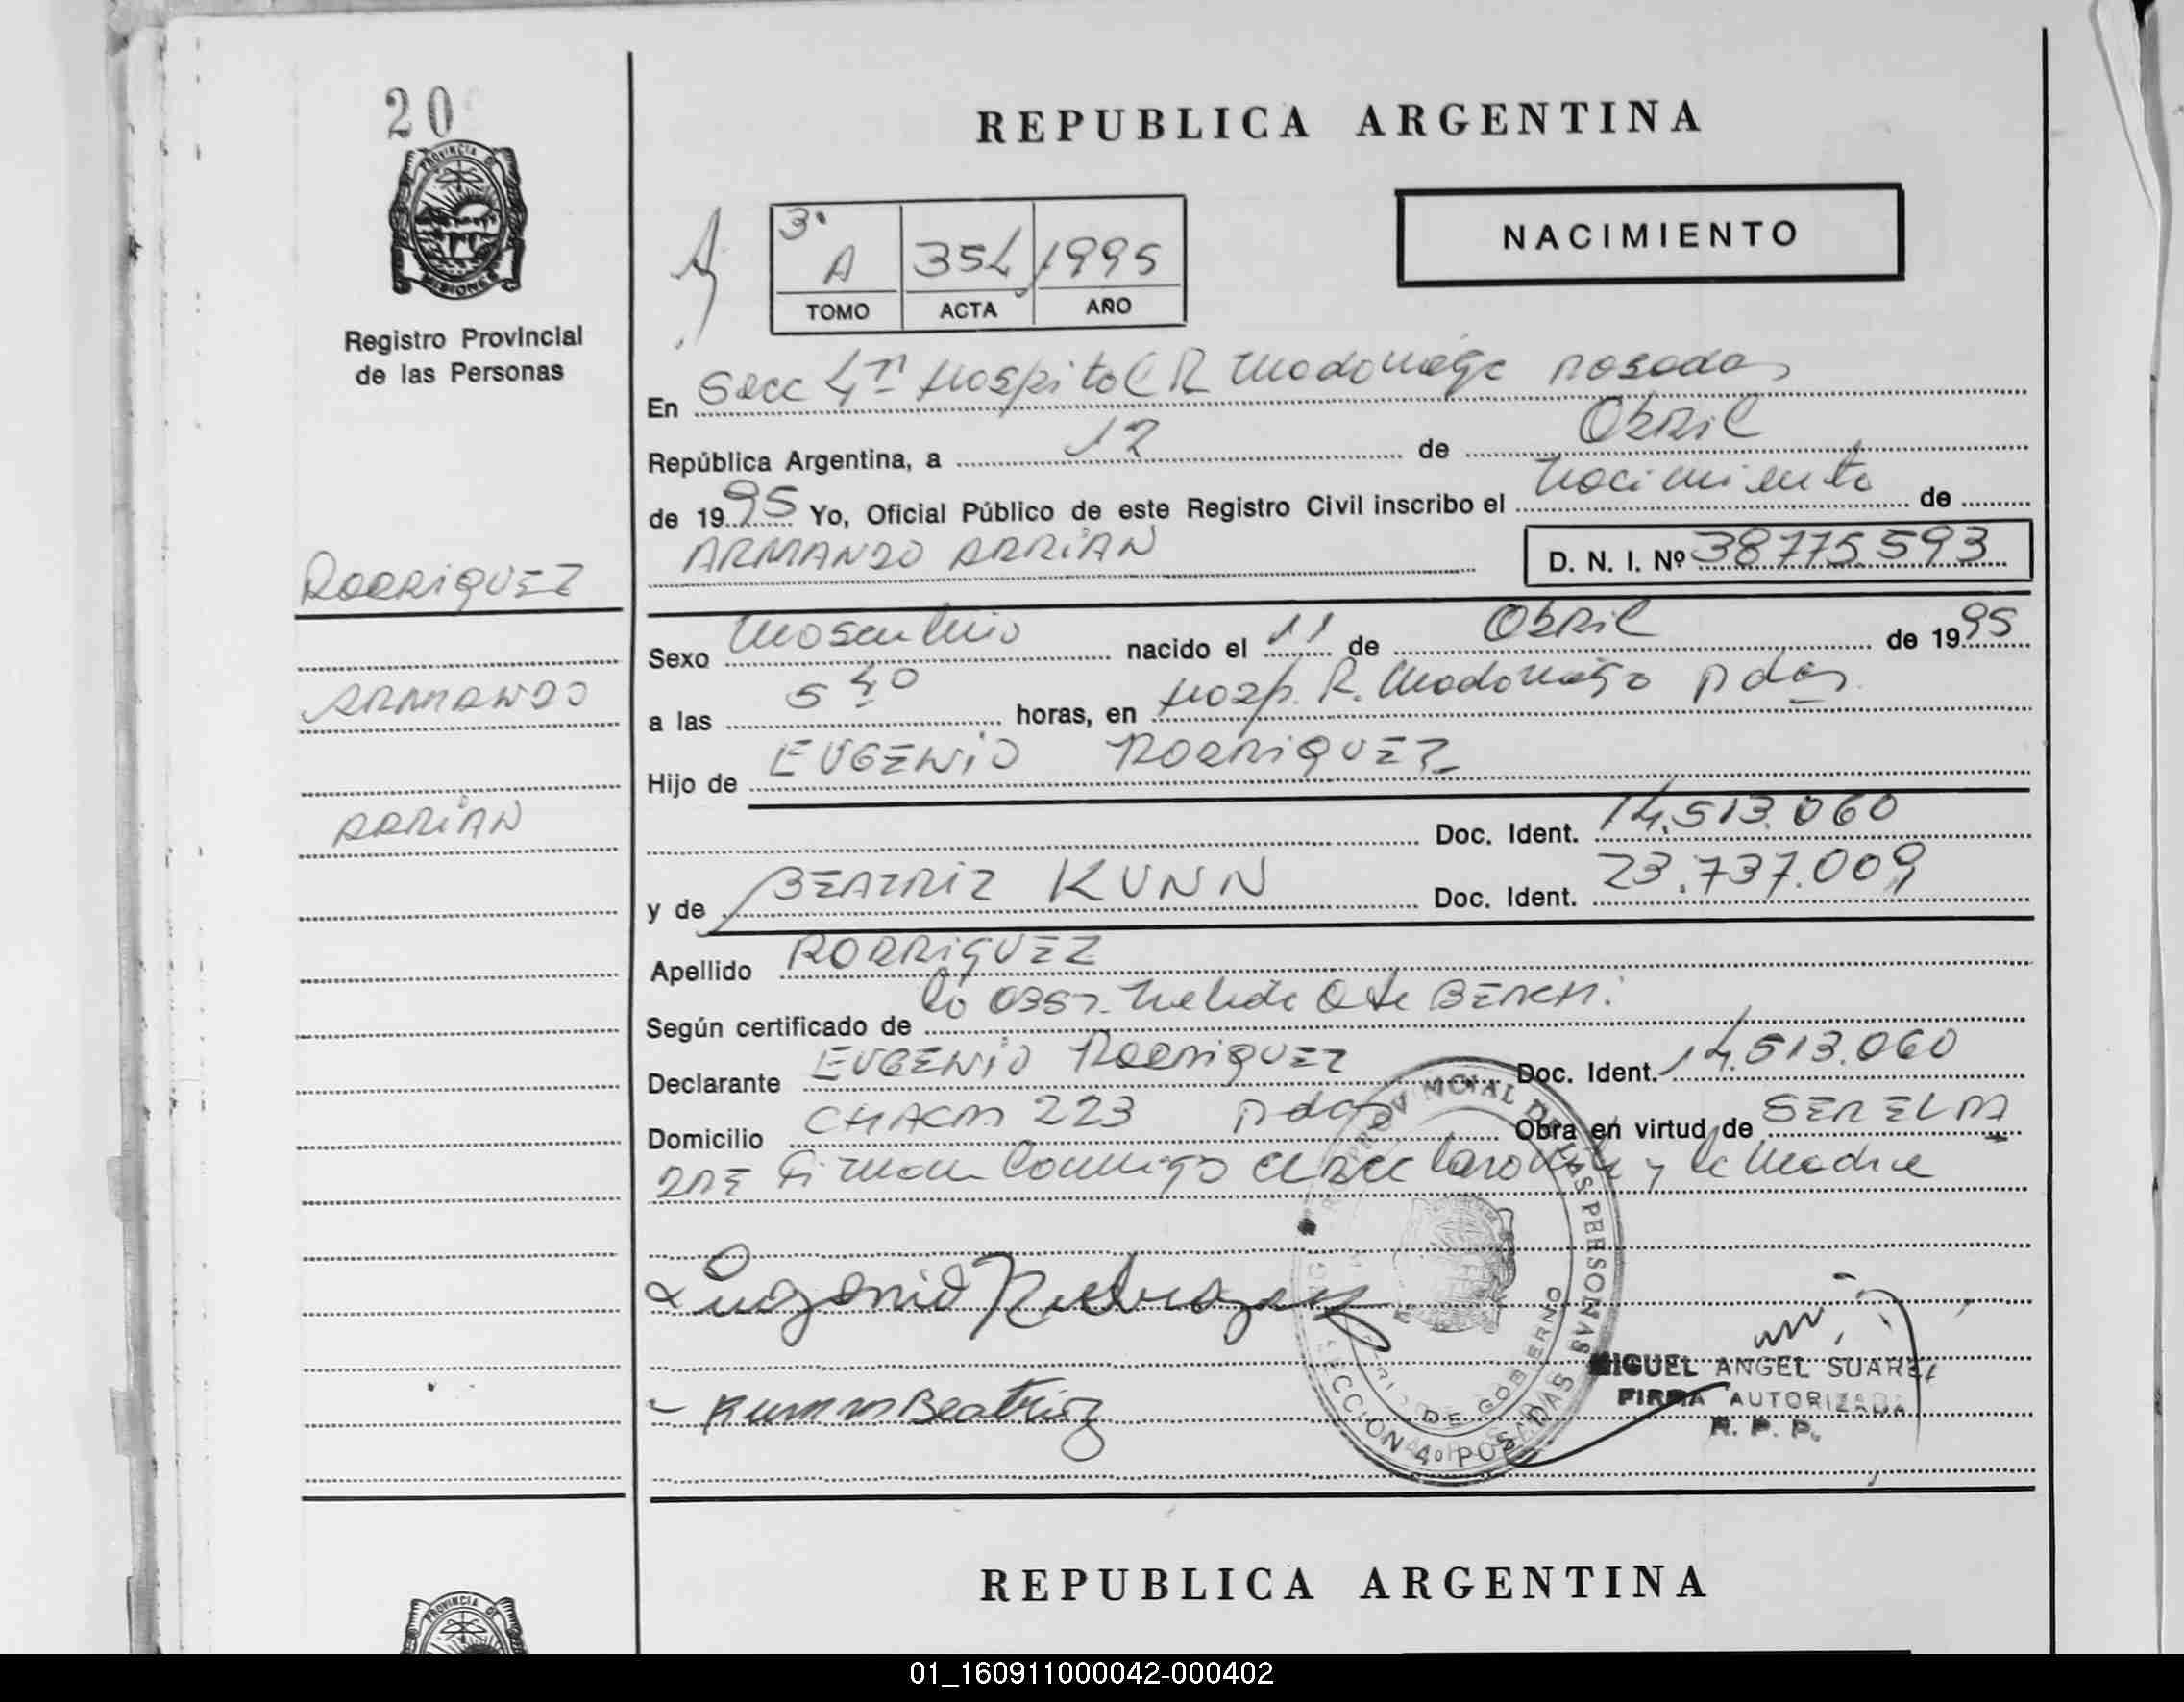 20
PROVINCIA DE
MISIONES
Registro Provincial
de las Personas
REPUBLICA ARGENTINA
NACIMIENTO
3ª
A 354 1995
TOMO ACTA AÑO
En Secc 4ta Hospital R Madariaga Posadas
República Argentina, a 12 de Abril
de 1995 Yo, Oficial Público de este Registro Civil inscribo el nacimiento de
ARMANDO ADRIÁN D. N. I. Nº 38775593
RODRIGUEZ
ARMANDO
ADRIÁN
Sexo Masculino nacido el 11 de Abril de 1995
a las 5 40 horas, en Hosp. R. Madariaga Pdas.
Hijo de EUGENIO RODRIGUEZ
Doc. Ident. 14.513.060
y de BEATRIZ KUNN Doc. Ident. 23.737.009
Apellido RODRIGUEZ
Según certificado de la Obst.
Declarante EUGENIO RODRIGUEZ Doc. Ident. 14.513.060
Domicilio CHACO 223 Pdas Obra en virtud de SER EL PA
DRE Firman Conmigo el declarante y la Madre
PROVINCIAL DE LAS PERSONAS
DE GOBIERNO
SECCION 4º POSADAS
Eugenio
Beatriz
MIGUEL ANGEL SUAREZ
FIRMA AUTORIZADA
R. P. P.
REPUBLICA ARGENTINA
PROVINCIA DE
01_160911000042-000402